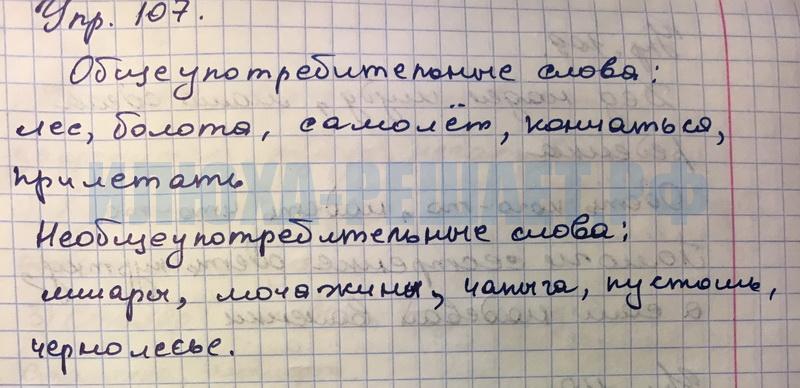 Упр. 107.
Общеупотребительные слова:
лес, болота, самолёт, кончаться,
прилетать
ИЛЮХА-РЕШАЕТ.РФ
Необщеупотребительные слова:
мшары, мочажины, чапыга, пустошь,
чернолесье.